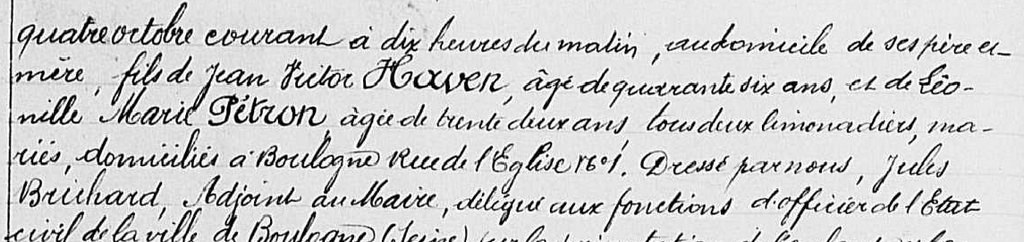 quatre octobre courant à dix heures du matin, au domicile de ses père et
mère, fils de Jean Victor Haven, âgé de quarante six ans, et de Léo-
nille Marie Pétron, âgée de trente deux ans, tous deux limonadiers, ma-
riés, domiciliés à Boulogne Rue de l'Eglise No 1. Dressé par nous, Jules
Brichard, Adjoint au Maire, délégué aux fonctions d'officier de l'Etat
civil de la ville de Boulogne (Seine) sur la présentation de l'enfant